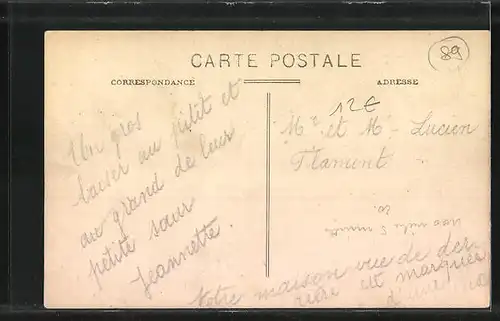 CARTE POSTALE
89
CORRESPONDANCE
ADRESSE
12€
Un gros
baiser au petit et
au grand de leur
petite sœur
Jeannette
Mr et Me Lucien
Flamant
Notre maison vue de der-
rière est marquée
d'une